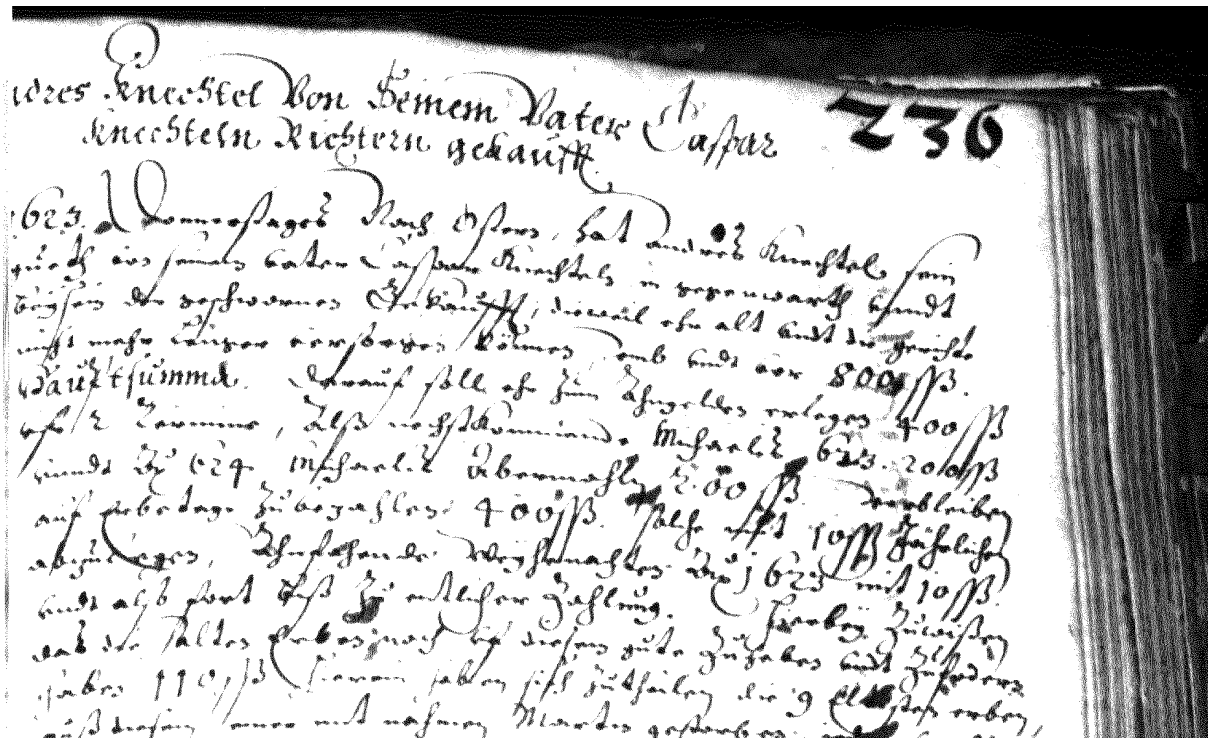 Andres Knechtel Von Seinem Vater Caspar
236
Knechteln Richtern gekaufft
1623. Donnerstages Nach Ostern, hat andres Knechtel sein
gueth von seinem vater Caspar Knechteln in gegenwarth vundt
beysein der geschwornen Erkaufft, dieweil ehr alt vndt die gerichte
nicht mehr lenger versorgen können, umb vndt vor 800 ßß.
Kauftsumma. Darauf soll ehr zum Angelden erlegen 400 ßß
vf 2 Termine, Alß nechstkommende Michaelis 623. 200 ßß
vnndt Ao 624 Michaelis Abermahln 200 ßß. verbleiben
auf erbetage zubezahlen 400 ßß. solche mit 10 ßß Jährlichen
abzulegen, Anfahende Weyhenachten Ao 1623 mit 10 ßß.
vndt also fort biß zu entlicher Zahlung. Hierbey zuwißen
das die alten erben noch vf diesem gute zuhaben vndt zufodern
haben 110 ßß Hierein haben sich zutheilen die 9 Eltesten erben,
auß diesem einer mit nahmen Martin gestorben